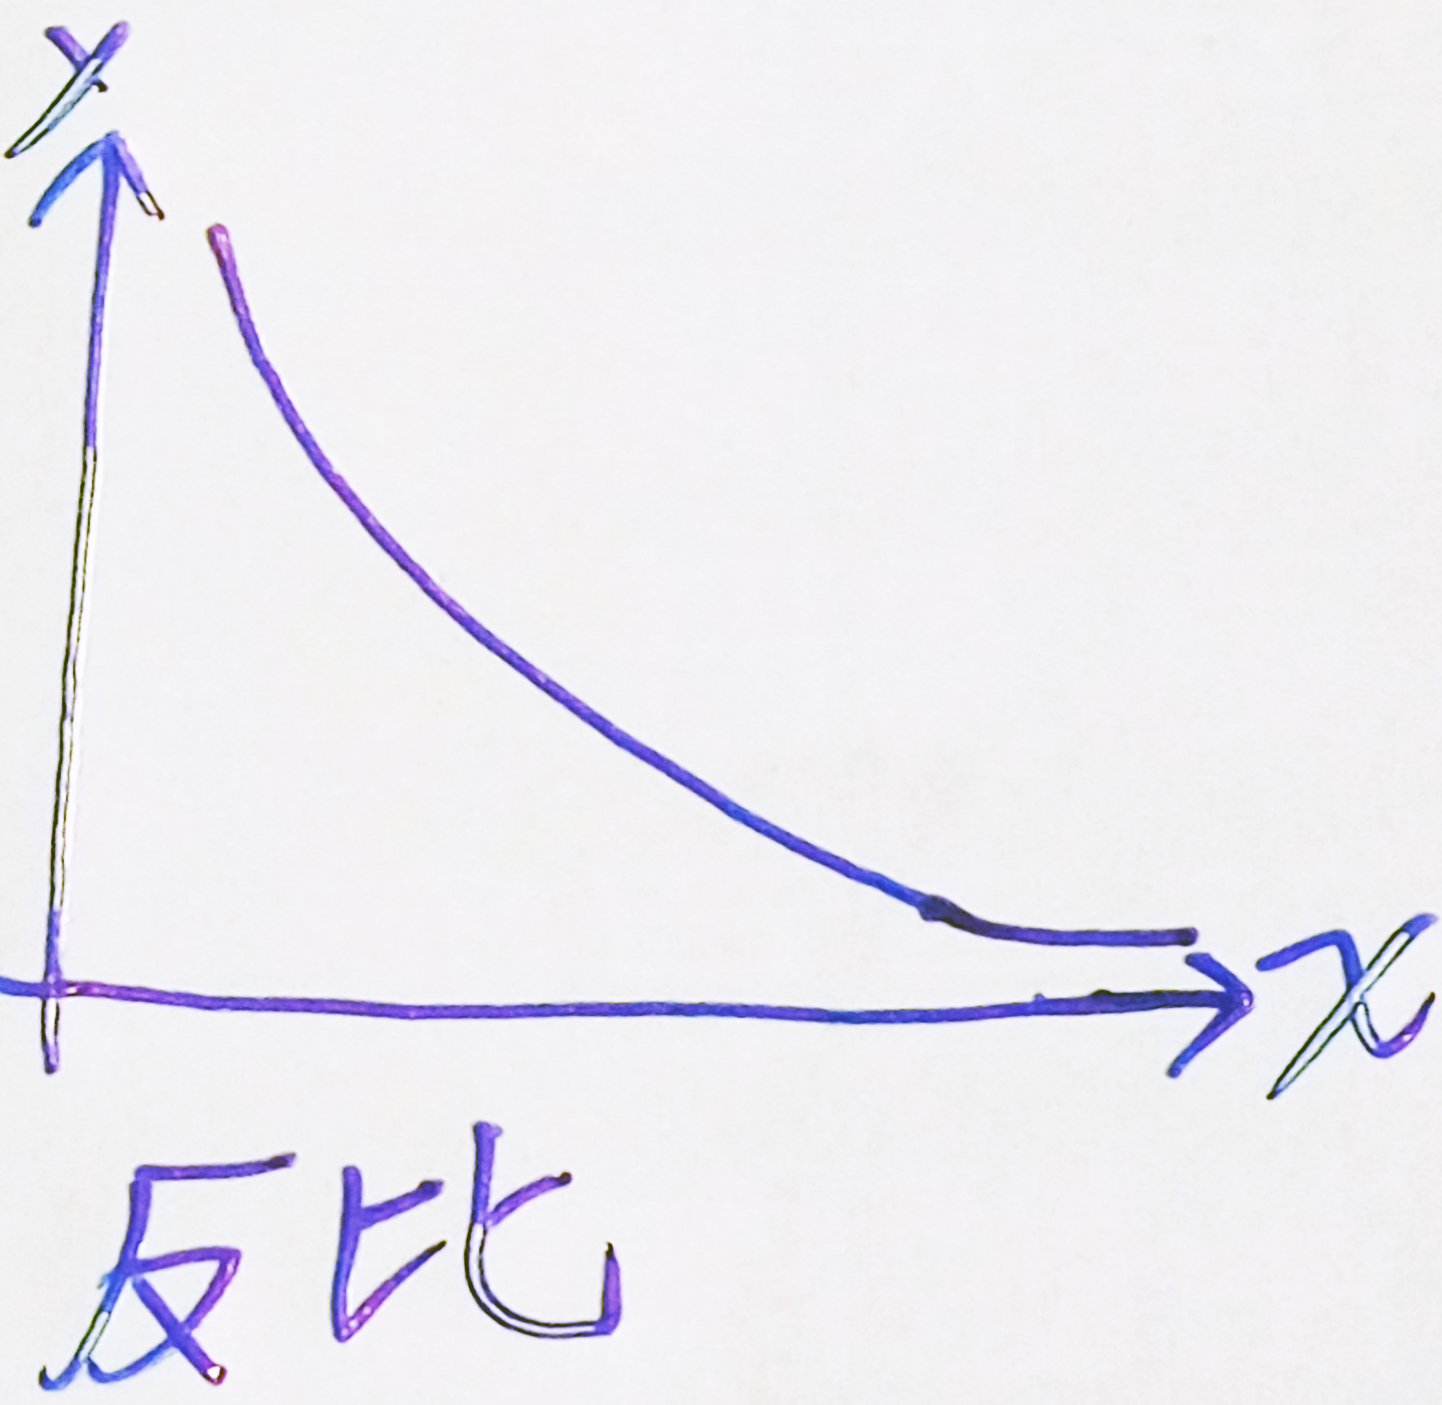 Y
x
反比